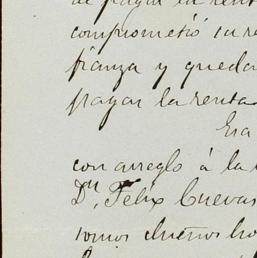 de pagar la rent
comprometió su re
fianza y queda
pagar la renta
Era
con arreglo á la
Dn. Felix Cuevas
somos dueños